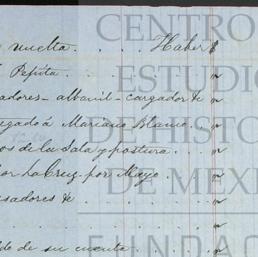 vuelta. . . . Haber $
Pepita. . . . "
adores-albanil-cargador &c "
egado á Mariano Blanco. "
os de la Sala y postura. "
or La Cruz por Mayo "
sadores &c . . . "
do de su cuenta . . "
CENTRO
ESTUDIO
DE HISTO
DE MEXI
FUNDAC